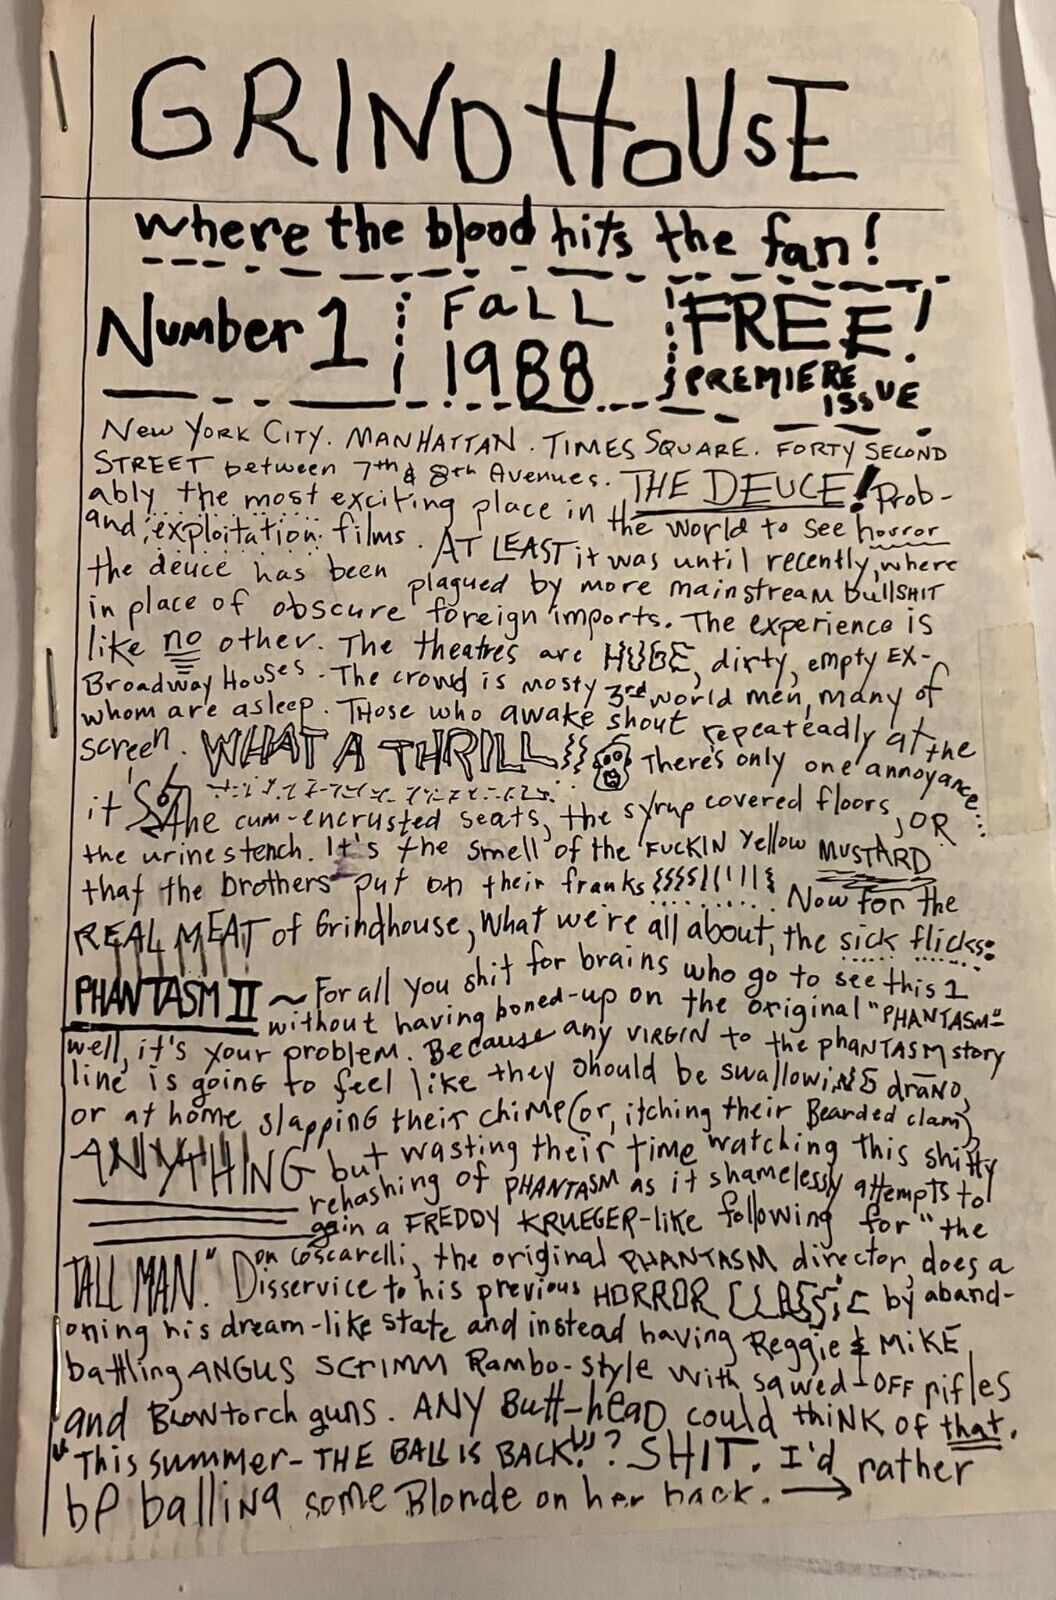 GRINDHOUSE
where the blood hits the fan!
Number 1
FaLL
1988
FREE!
PREMIERE
ISSUE
NEW YORK CITY. MANHATTAN. TIMES SQUARE. FORTY SECOND
STREET between 7th & 8th Avenues. THE DEUCE! Prob-
ably the most exciting place in the world to see horror
and exploitation films. AT LEAST it was until recently, where
the deuce has been plagued by more mainstream bullSHIT
in place of obscure foreign imports. The experience is
like no other. The theatres are HUGE, dirty, empty EX-
Broadway Houses. The crowd is mosty 3rd world men, many of
whom are asleep. Those who awake shout repeateadly at the
screen. WHAT A THRILL There's only one annoyance...
it's the cum-encrusted seats, the syrup covered floors, OR
the urine stench. It's the smell of the FUCKIN Yellow MUSTARD
that the brothers put on their franks!!!!! Now for the
REAL MEAT of Grindhouse, What we're all about, the sick flicks:
PHANTASM II ~ For all you shit for brains who go to see this 1
without having boned-up on the original "PHANTASM"
well, it's your problem. Because any VIRGIN to the phANTASM story
line is going to feel like they should be swallowiNG drANO,
or at home slapping their chimp (or, itching their Bearded clam)
ANYTHING but wasting their time watching this shitty
rehashing of PHANTASM as it shamelessly attempts to
gain a FREDDY KRUEGER-like following for "the
TALL MAN." Don Coscarelli, the original PHANTASM director, does a
Disservice to his previous HORROR CLASSIC by aband-
oning his dream-like state and instead having Reggie & MiKE
battling ANGUS SCRIMM Rambo-style with sawed-OFF rifles
and BLOWtorch guns. ANY Butt-heaD could thiNK of that.
"This summer- THE BALL IS BACK!"? SHIT. I'd rather
be balling some Blonde on her back. →